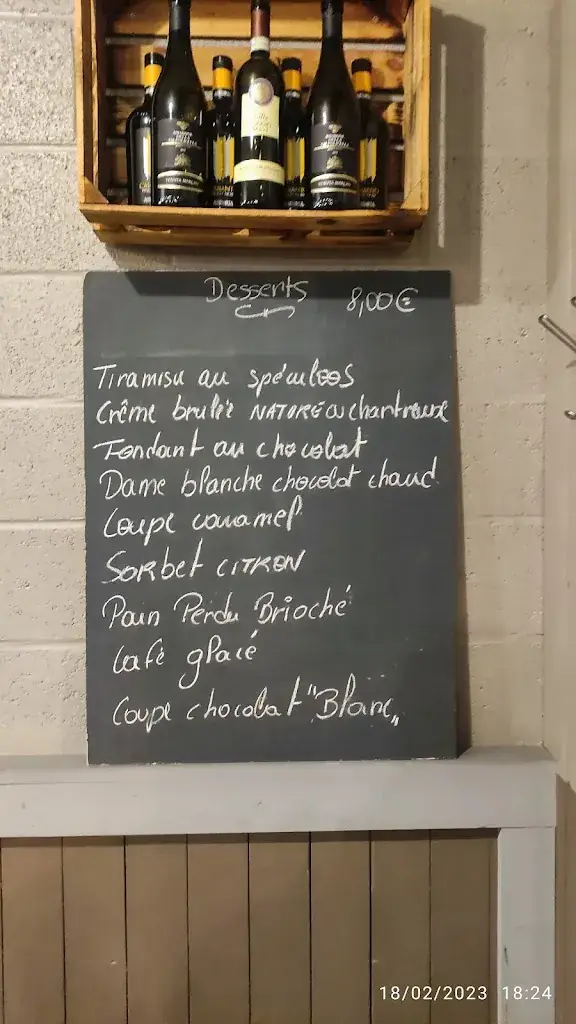 Desserts 8,00€
Tiramisu au spéculoos
Crême brulée NATURE ou chartreuse
Fondant au chocolat
Dame blanche chocolat chaud
Coupe caramel
SORBET CITRON
Pain Perdu Brioché
Café glacé
Coupe chocolat "Blanc"
18/02/2023 18:24